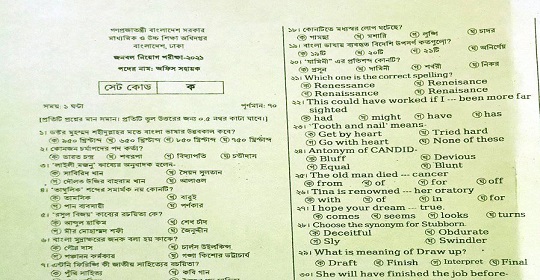 গণপ্রজাতন্ত্রী বাংলাদেশ সরকার
মাধ্যমিক ও উচ্চ শিক্ষা অধিদপ্তর
বাংলাদেশ, ঢাকা
জনবল নিয়োগ পরীক্ষা-২০২১
পদের নাম: অফিস সহায়ক
সেট কোড ক
সময়: ১ ঘন্টা পূর্ণমান: ৭০
[প্রতিটি প্রশ্নের মান সমান। প্রতিটি ভুল উত্তরের জন্য ০.৫ নম্বর কাটা যাবে।]
১। ডক্টর মুহম্মদ শহীদুল্লাহর মতে বাংলা ভাষার উদ্ভবকাল কবে?
ক ৯৫০ খ্রিস্টাব্দ খ ৬৫০ খ্রিস্টাব্দ গ ৮৫০ খ্রিস্টাব্দ ঘ ৭৫০ খ্রিস্টাব্দ
২। কোনজন চর্যাপদের পদ কর্তা?
ক ভারত চন্দ্র খ শবরপা গ বিদ্যাপতি ঘ চণ্ডীদাস
৩। 'লাইলী মজনু' কাব্যের অনুবাদক হলেন-
ক সাবিরিদ খান খ সৈয়দ সুলতান
গ দৌলত উজির বাহরাম খান ঘ আলাওল
৪। 'তাম্বুলিক' শব্দের সমার্থক নয় কোনটি?
ক তামসিক খ বারুই
গ পান ব্যবসায়ী ঘ পর্ণকার
৫। 'রসুল বিজয়' কাব্যের রচয়িতা কে?
ক আব্দুল হাকিম খ শেখ চাঁদ
গ মীর মোশাররফ ঘ জৈনুদ্দীন
৬। বাংলা মুদ্রাক্ষরের জনক বলা হয় কাকে?
ক গৌর দাস খ চার্লস উইলকিন্স
গ পঞ্চানন কর্মকার ঘ গঙ্গা কিশোর ভট্টাচার্য
৭। এন্টনি ফিরিঙ্গি কী জাতীয় সাহিত্যের রচয়িতা?
ক পুঁথি সাহিত্য খ কবি গান
১৮। কোনটিতে মধ্যস্বর লোপ ঘটেছে?
ক গামছা খ মশারি গ লুঙ্গি ঘ চাদর
১৯। বাংলা ভাষায় ব্যবহৃত বিদেশি উপসর্গ কতগুলো?
ক ১৯টি খ ২০টি গ ২১টি ঘ অনির্ণেয়
২০। "যামিনী" এর প্রতিশব্দ কোনটি?
ক প্রসূন খ যামিনী গ শর্বরী ঘ নিকর
২১। Which one is the correct spelling?
ক Renessance খ Reneisance
গ Renaissance ঘ Renaisance
২২। This could have worked if I --- been more far
sighted
ক had খ might গ have ঘ has
২৩। 'Tooth and nail' means-
ক Get by heart খ Tried hard
গ Go with heart ঘ None of these
২৪। Antonym of CANDID-
ক Bluff খ Devious
গ Equal ঘ Blunt
২৫। The old man died --- cancer
ক from খ of গ for ঘ off
২৬। Tina is renowned --- her oratory
ক with খ of গ in ঘ for
২৭। I hope your dream --- true.
ক comes খ seems গ looks ঘ turns
২৮। Choose the synonym for Stubborn
ক Deceitful খ Obdurate
গ Sly ঘ Swindler
২৯। What is meaning of Draw up?
ক Draft খ Finish গ Interpret ঘ Final
৩০। She will have finished the job before-